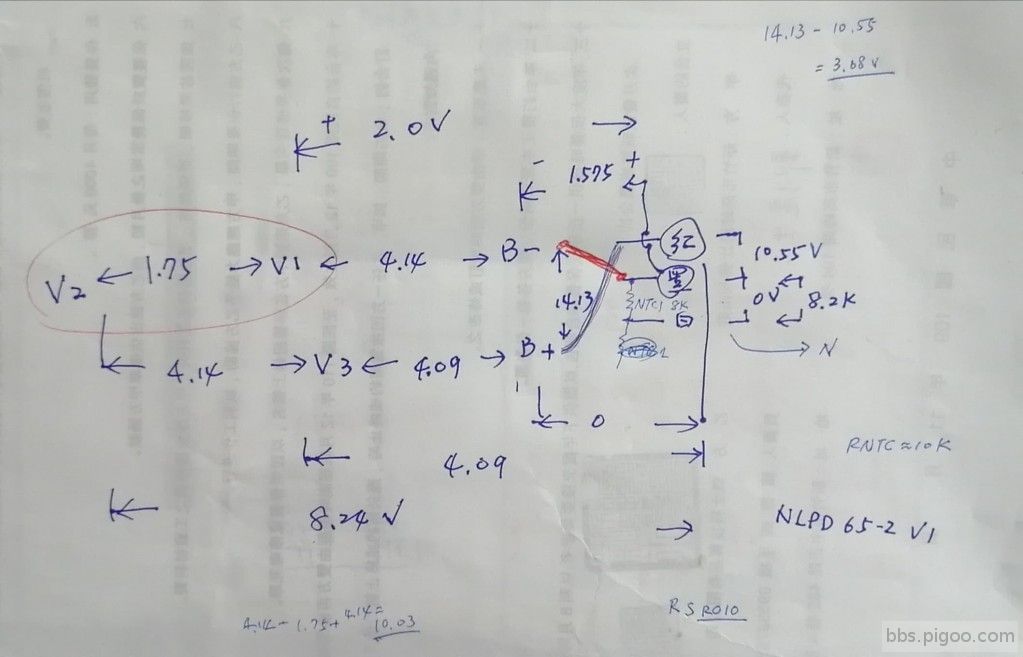 14.13 - 10.55
= 3.68 V
+ 2.0V
- 1.575 +
V2 1.75 V1 4.14 B-
红 10.55V
黑
14.13
NTC1 8K
0V 8.2K
白
N
4.14 V3 4.09 B+
0
4.09
RNTC≈10K
8.24 V
NLPD 65-2 V1
4.14 - 1.75 + 4.14 =
10.03
RS R010
bbs.pigoo.com